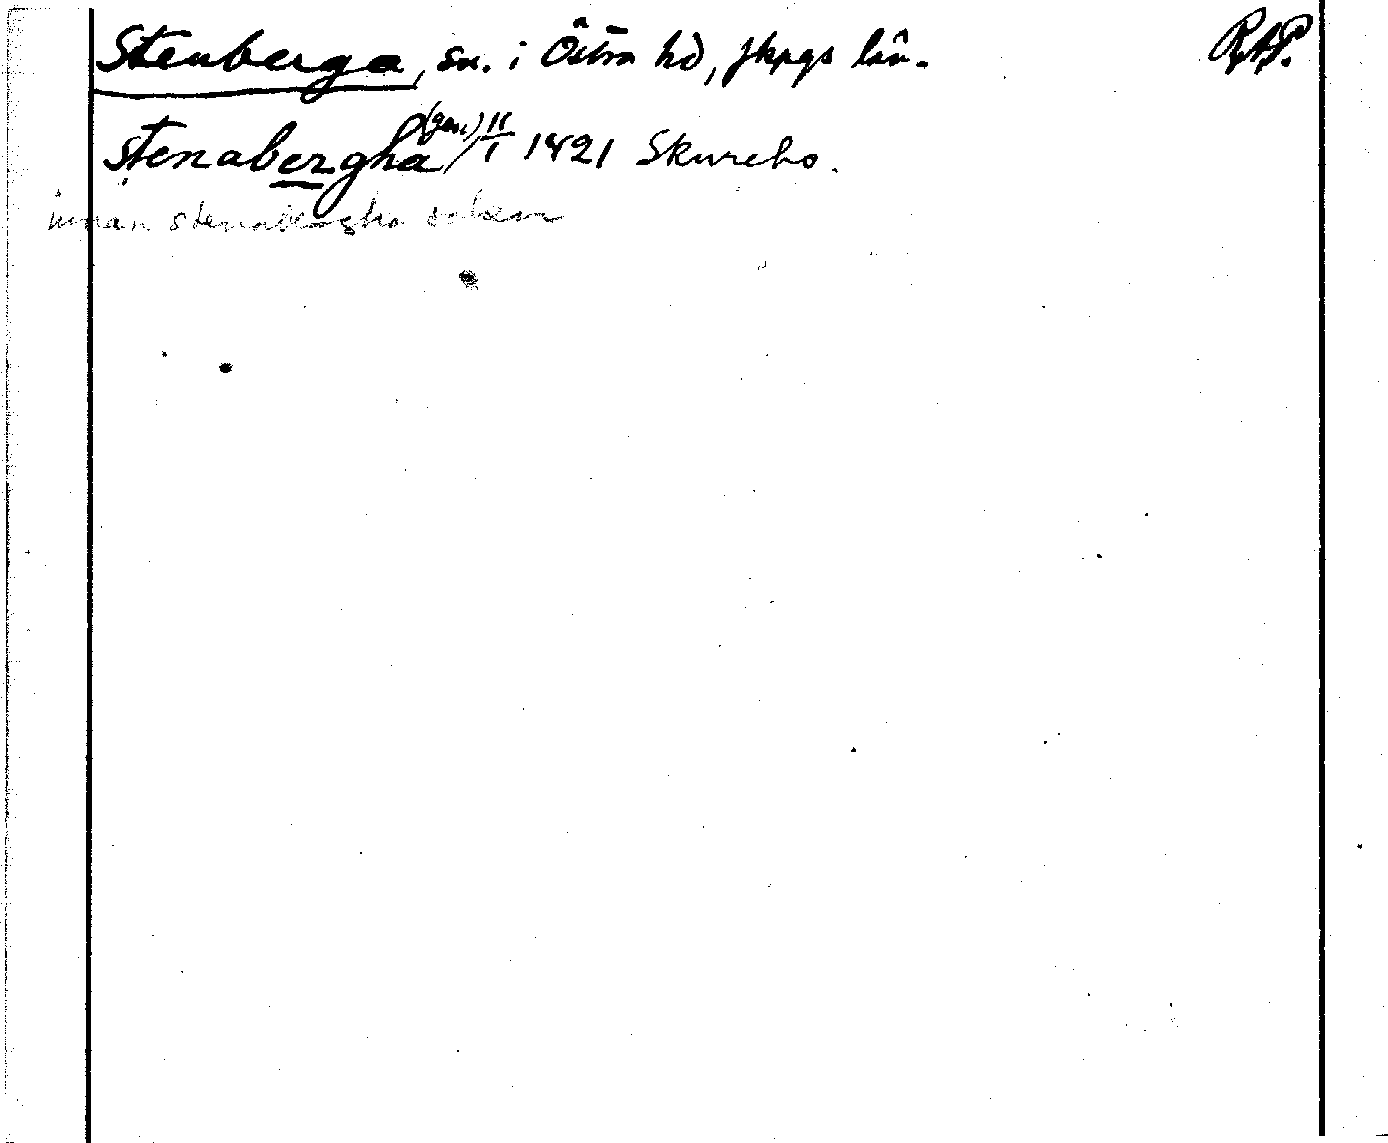 Stenberga, sn. i Östra hd, Jkpgs län. R.A.P.
stenabergha (gen.) 11/1 1421 Skurebo.
innan stenabergha sokn